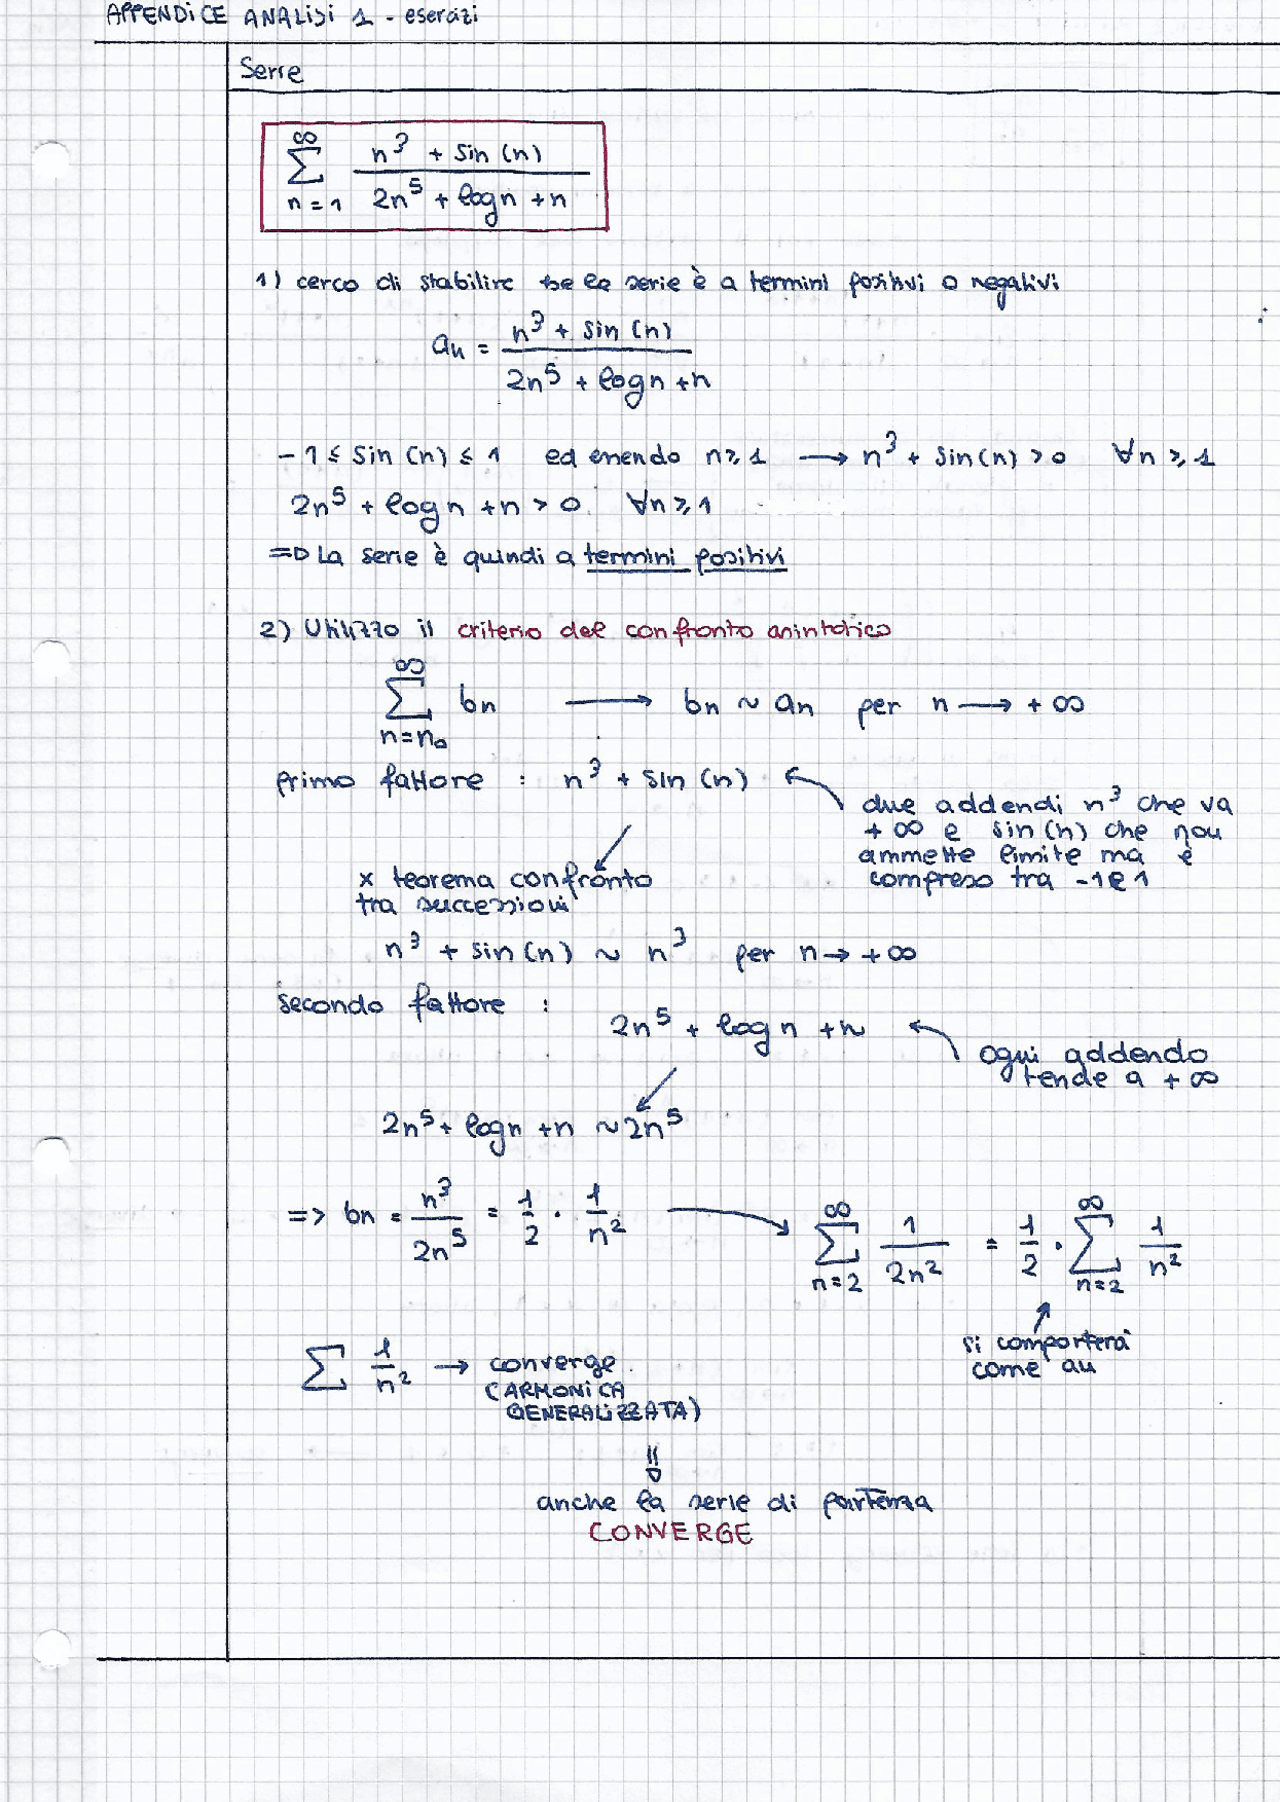 APPENDICE ANALISI 1 - esercizi
Serie
∞
∑ n³ + sin (n) / 2n⁵ + logn + n
n = 1
1) cerco di stabilire se la serie è a termini positivi o negativi
an = n³ + sin (n) / 2n⁵ + logn + n
-1 ≤ sin (n) ≤ 1 ed essendo n ≥ 1 → n³ + sin(n) > 0 ∀n ≥ 1
2n⁵ + logn + n > 0 ∀n ≥ 1
=> La serie è quindi a termini positivi
2) Utilizzo il criterio del confronto asintotico
∞
∑ bn → bn ~ an per n → + ∞
n = n₀
primo fattore : n³ + sin (n)
due addendi n³ che va
+ ∞ e sin (n) che non
ammette limite ma è
compreso tra -1 e 1
x teorema confronto
tra successioni
n³ + sin (n) ~ n³ per n → + ∞
secondo fattore :
2n⁵ + logn + n
ogni addendo
tende a + ∞
2n⁵ + logn + n ~ 2n⁵
=> bn = n³ / 2n⁵ = 1/2 · 1/n² → ∞ ∑ n=2 1/2n² = 1/2 · ∞ ∑ n=2 1/n²
si comporterà
come an
∑ 1/n² → converge
(ARMONICA
GENERALIZZATA)
⇓
anche la serie di partenza
CONVERGE